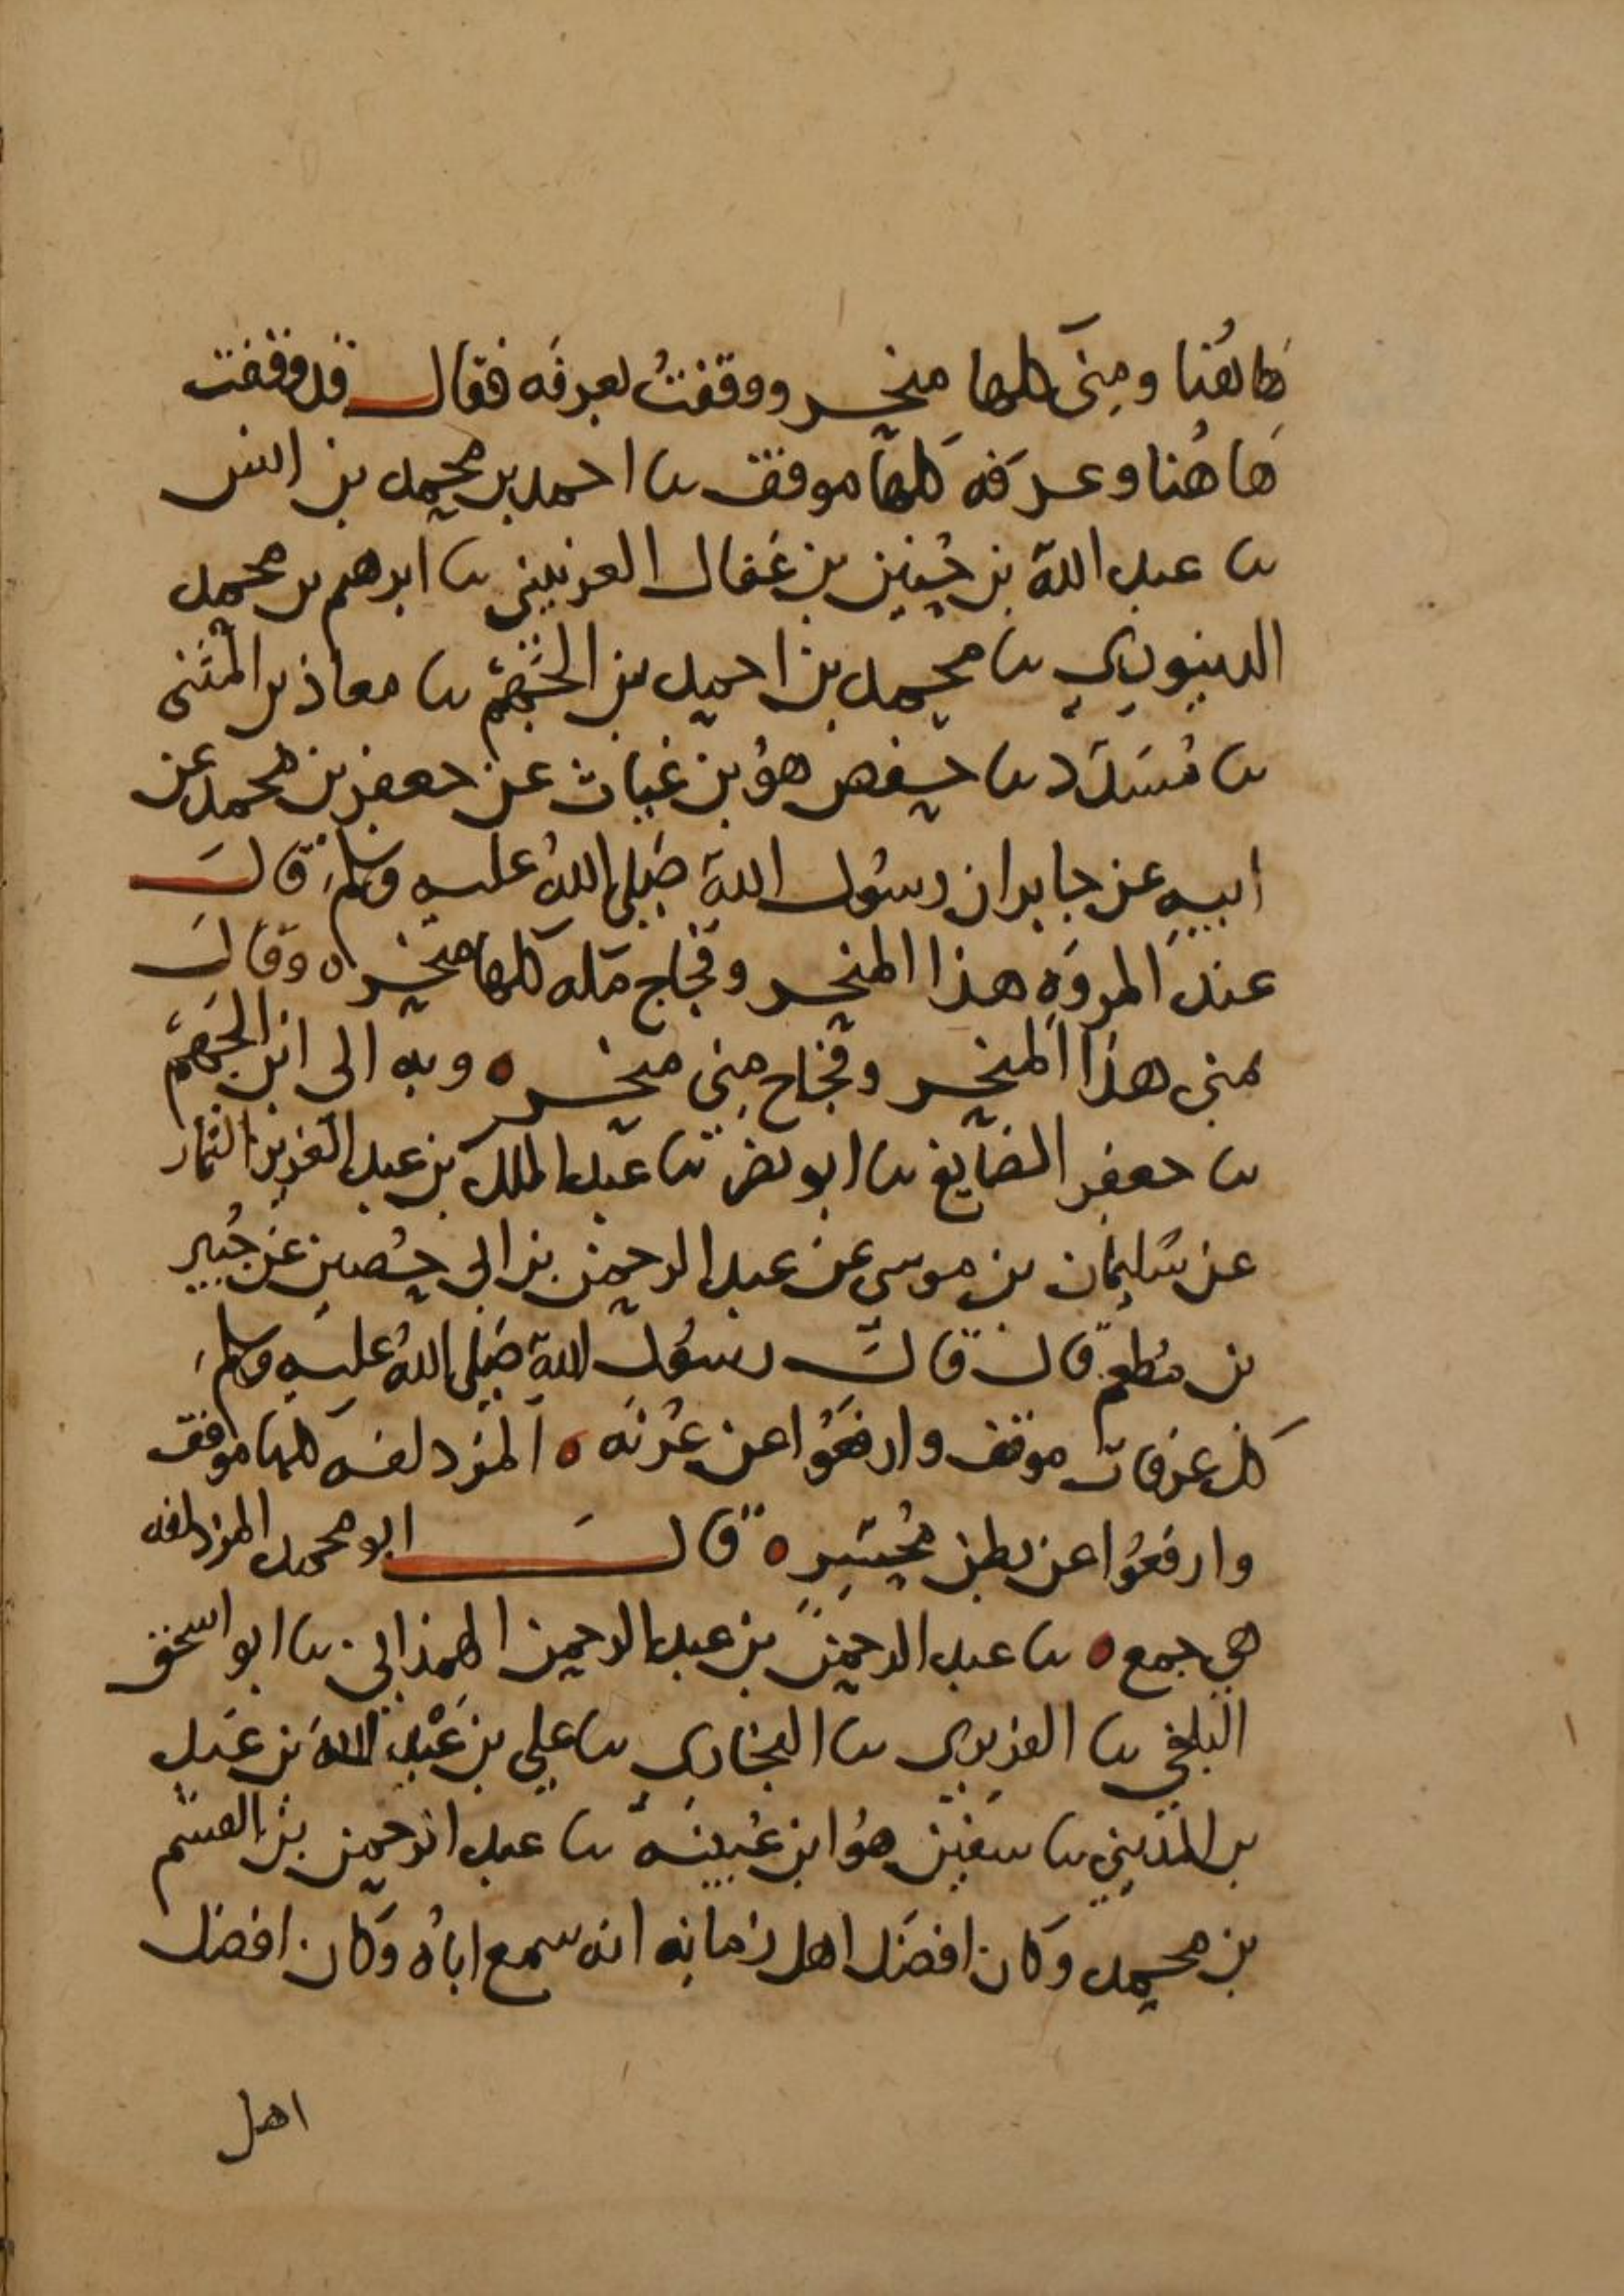 هاهُنا ومِنَى كلها منحر ووقفتُ بعرفه فقال قد وقفت
هَاهُنا وعرَفه كلها موقف ثنا احمد بن محمد بن انس
ثنا عبد الله بن حُسين بن عَقال القرينشي ثنا ابرهيم بن محمد
الدينوري ثنا محمد بن احمد بن الجَهْم ثنا معاذ بن المثنى
ثنا مُسَدّد ثنا حفص هوُ بن غياث عن جعفر بن محمد عن
ابيه عن جابر ان رسُول الله صَلى اللهُ عليه وسلم قال
عند المروَه هذا المنحر وفجاج مَكه كلها منحر ه وقال
بمنى هذا المنحر وفجاج مِنى منحر ه وبه الى ابن الجَهم
ثنا جعفر الصَايغ ثنا ابو نصر ثنا عبد الملك بن عبد العَزيز التمار
عن سُليمان بن موسى عن عبد الرحمن بن ابي حُصين عن جُبير
بن مُطعم قال قال رسُول الله صَلى اللهُ عليه وسلم
كل عرفات موقف وارفعُوا عن عُرنَه ه المزدلفه كلها موقف
وارفعُوا عن بطن مُحسِّر ه قال ابو محمد المزدلفه
هي جمع ه ثنا عبد الرحمن بن عبد الرحمن الهمذاني ثنا ابو اسحق
البلخي ثنا الفربري ثنا البخاري ثنا علي بن عَبْد الله بن عَبد
بن المديني ثنا سفين هوُ ابن عُيينه ثنا عبد الرحمن بن القسم
بن محمد وَكان افضَل اهل زمانِه انه سمع اباه وَكان افضل
اهل